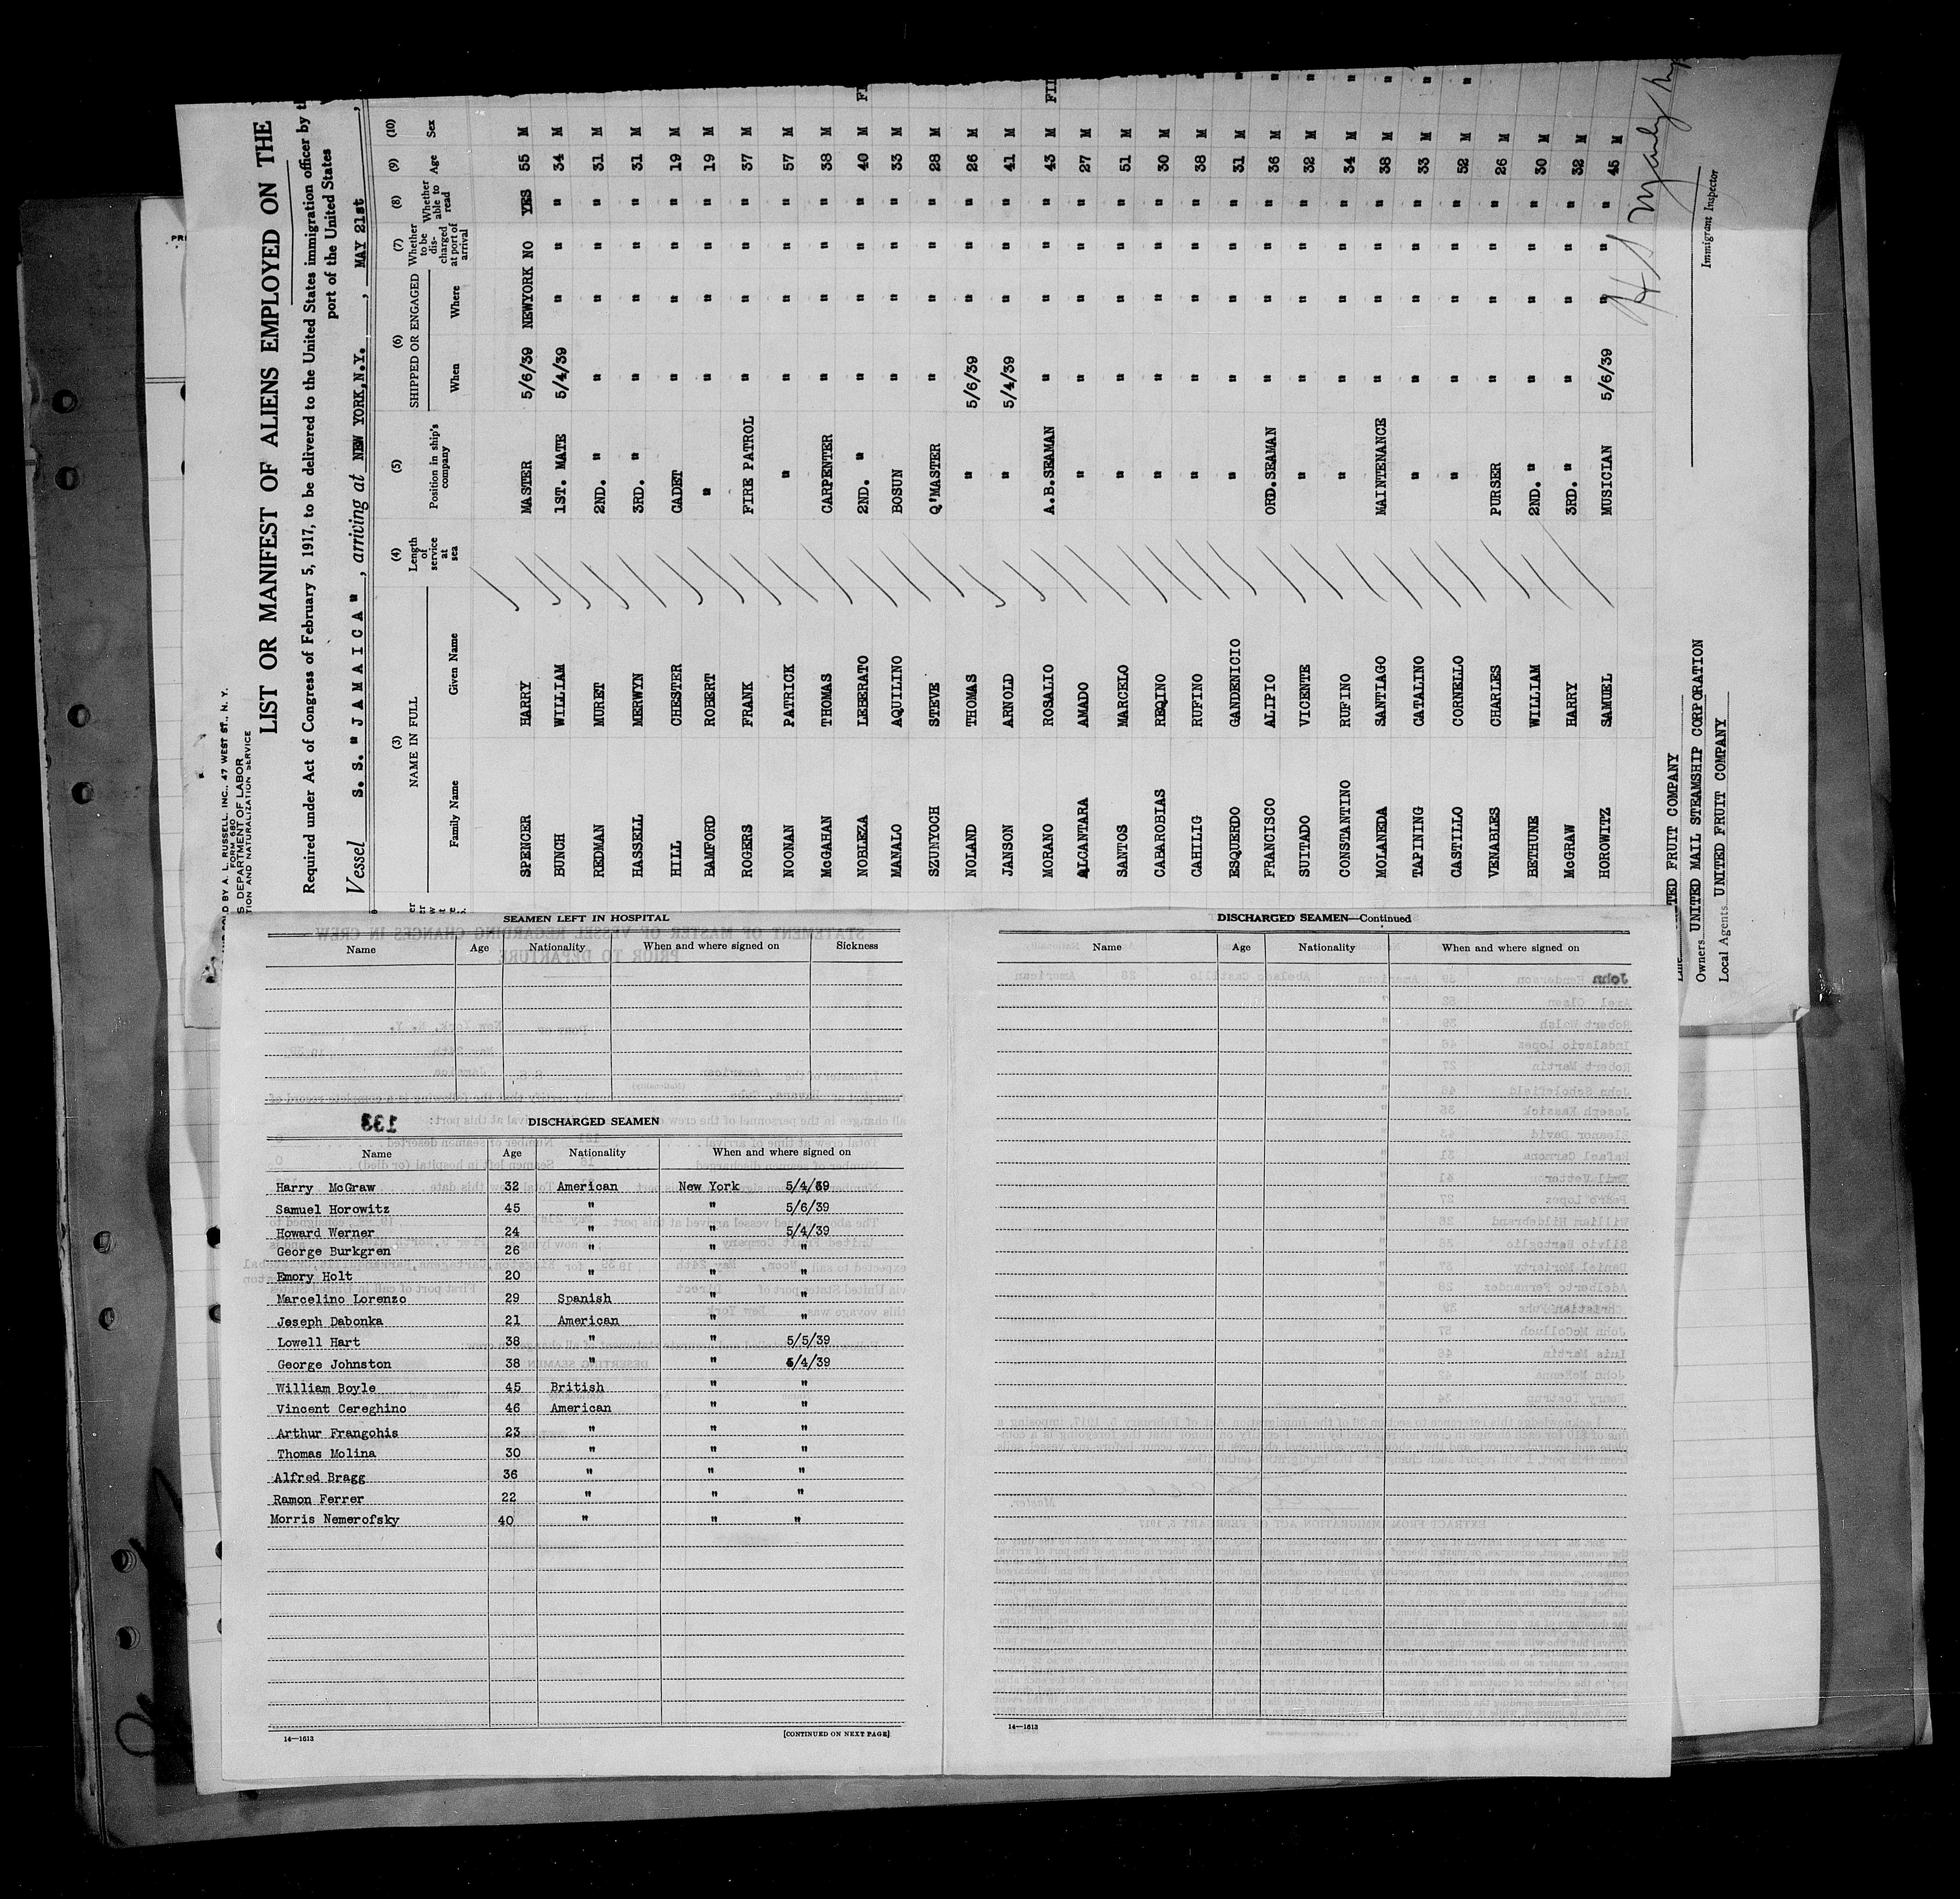 AND SOLD BY A. L. RUSSELL, INC., 47 WEST ST., N. Y.
FORM 680
S DEPARTMENT OF LABOR
TION AND NATURALIZATION SERVICE
LIST OR MANIFEST OF ALIENS EMPLOYED ON THE
Required under Act of Congress of February 5, 1917, to be delivered to the United States immigration officer by t
port of the United States
Vessel S. S. "JAMAICA", arriving at NEW YORK, N.Y., MAY 21st,
(3) (4) (5) (6) (7) (8) (9) (10)
NAME IN FULL Length of service at sea Position in ship's company SHIPPED OR ENGAGED Whether to be discharged at port of arrival Whether able to read Age Sex
Family Name Given Name When Where
SPENCER HARRY MASTER 5/6/39 NEWYORK NO YES 55 M
BUNCH WILLIAM 1ST. MATE 5/4/39 " " " 34 M
REDMAN MURET 2ND. " " " " " 31 M
HASSELL MERWYN 3RD. " " " " " 31 M
HILL CHESTER CADET " " " " 19 M
BAMFORD ROBERT " " " " " 19 M
ROGERS FRANK FIRE PATROL " " " " 37 M
NOONAN PATRICK " " " " " 57 M
McGAHAN THOMAS CARPENTER " " " " 38 M
NOBLEZA LEBERATO 2ND. " " " " " 40 M FI
MANALO AQUILINO BOSUN " " " " 33 M
SZUNYOCH STEVE Q'MASTER " " " " 28 M
NOLAND THOMAS " 5/6/39 " " " 26 M
JANSON ARNOLD " 5/4/39 " " " 41 M
MORANO ROSALIO A.B.SEAMAN " " " " 43 M FIL
ALCANTARA AMADO " " " " " 27 M
SANTOS MARCELO " " " " " 51 M
CABAROBIAS REQINO " " " " " 30 M "
CAHILIG RUFINO " " " " " 38 M "
ESQUERDO GANDENICIO " " " " " 31 M "
FRANCISCO ALIPIO ORD.SEAMAN " " " " 36 M "
SUITADO VICENTE " " " " " 32 M "
CONSTANTINO RUFINO " " " " " 34 M "
MOLANEDA SANTIAGO MAINTENANCE " " " " 38 M "
TAPINING CATALINO " " " " " 33 M "
CASTILLO CORNELLO " " " " " 52 M "
VENABLES CHARLES PURSER " " " " 26 M
BETHUNE WILLIAM 2ND. " " " " " 30 M
McGRAW HARRY 3RD. " " " " " 32 M
HOROWITZ SAMUEL MUSICIAN 5/6/39 " " " 45 M
Immigrant Inspector
TED FRUIT COMPANY
Owners UNITED MAIL STEAMSHIP CORPORATION
Local Agents UNITED FRUIT COMPANY
SEAMEN LEFT IN HOSPITAL
Name Age Nationality When and where signed on Sickness
133
DISCHARGED SEAMEN
Name Age Nationality When and where signed on
Harry McGraw 32 American New York 5/4/39
Samuel Horowitz 45 " " 5/6/39
Howard Werner 24 " " 5/4/39
George Burkgren 26 " " "
Emory Holt 20 " " "
Marcelino Lorenzo 29 Spanish " "
Jeseph Dabonka 21 American " "
Lowell Hart 38 " " 5/5/39
George Johnston 38 " " 5/4/39
William Boyle 45 British " "
Vincent Cereghino 46 American " "
Arthur Frangohis 23 " " "
Thomas Molina 30 " " "
Alfred Bragg 36 " " "
Ramon Ferrer 22 " " "
Morris Nemerofsky 40 " " "
14—1613 [CONTINUED ON NEXT PAGE]
DISCHARGED SEAMEN—Continued
Name Age Nationality When and where signed on
14—1613